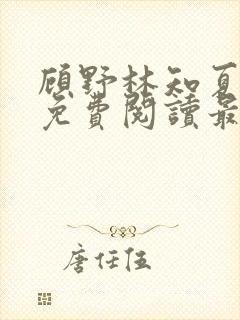 顾野林知夏
免費閱讀最
唐任伍